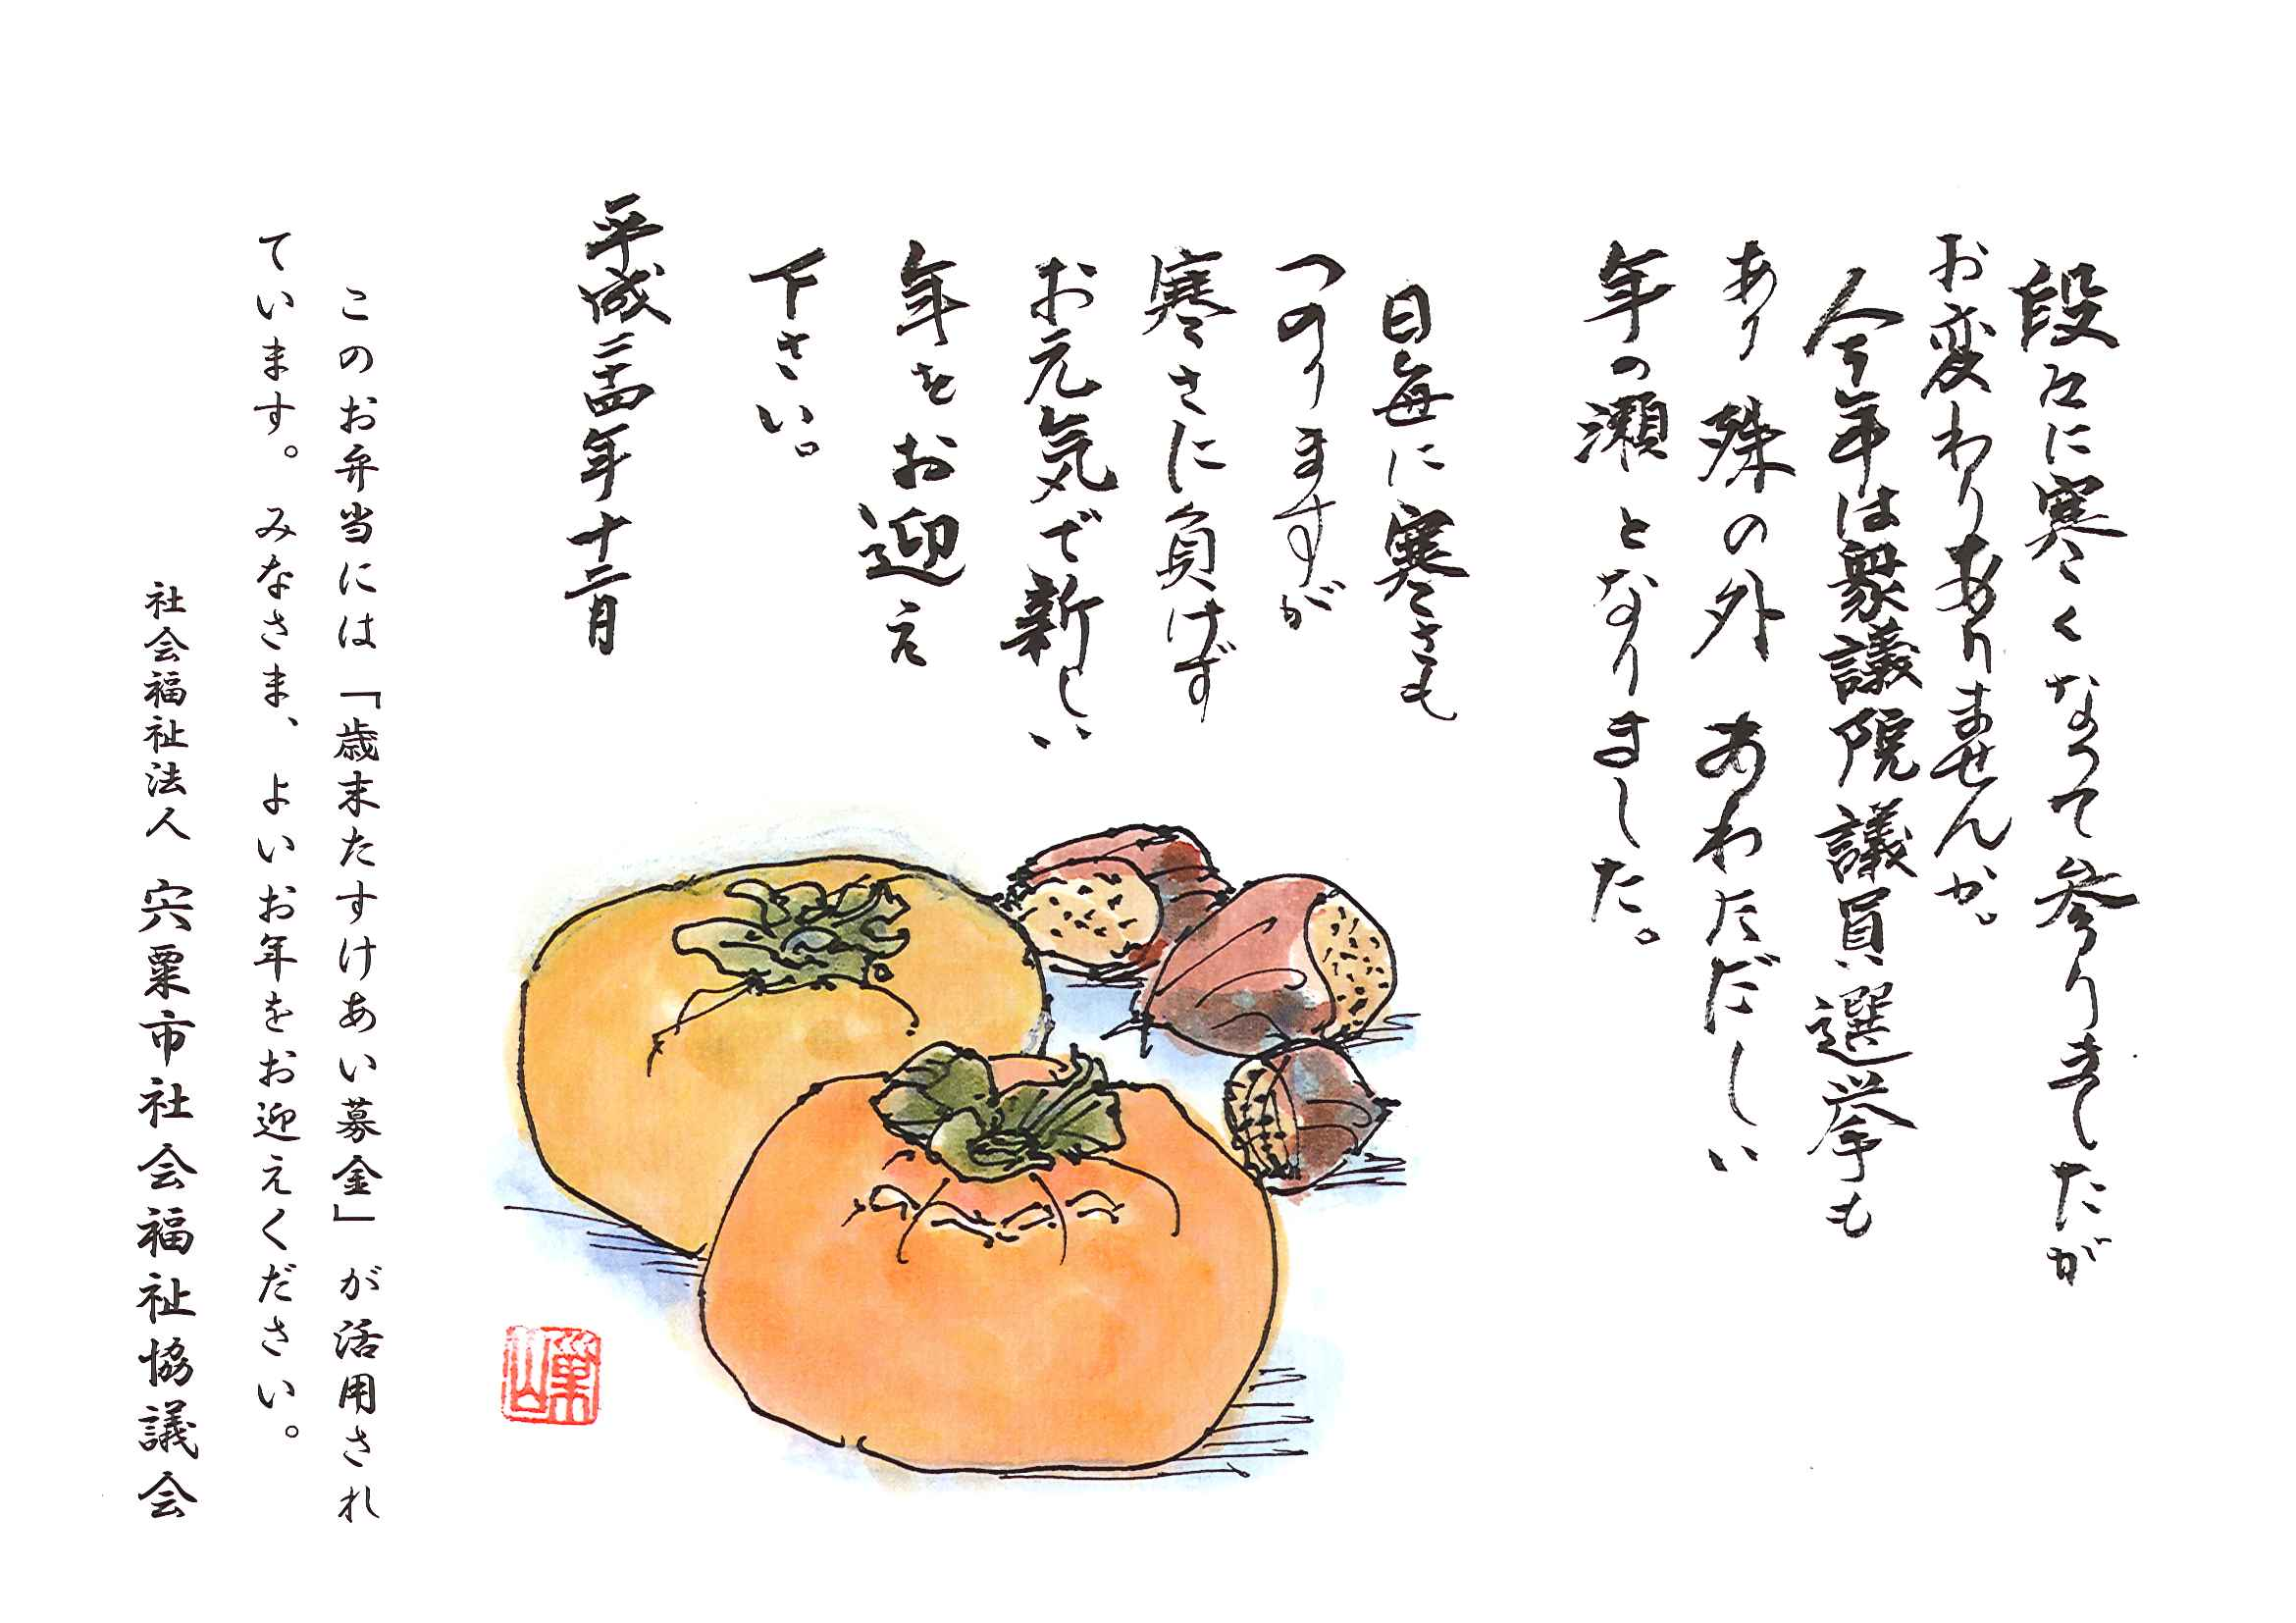 段々に寒くなって参りましたが
お変わりありませんか。
今年は衆議院議員選挙も
あり殊の外あわただしい
年の瀬となりました。
日毎に寒さも
つのりますが
寒さに負けず
お元気で新しい
年をお迎え
下さい。
平成二十四年十二月
このお弁当には「歳末たすけあい募金」が活用され
ています。みなさま、よいお年をお迎えください。
社会福祉法人 宍粟市社会福祉協議会